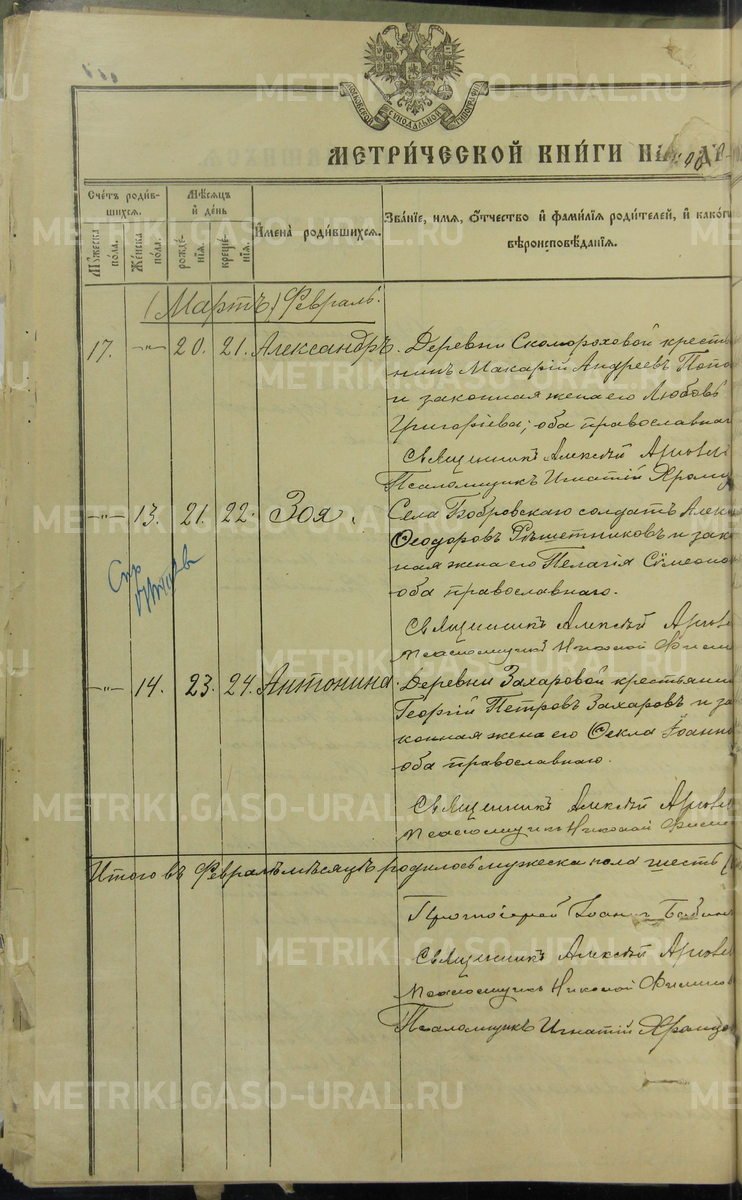 МОСКОВСКОЙ СѴНОДАЛЬНОЙ ТИПОГРАФІИ
МЕТРИ́ЧЕСКОЙ КНИ́ГИ НА
Сче́тъ роди́в-
шихся.
Мѣ́сяцъ
и҆ де́нь
И҆мена̀ роди́вшихся.
Зва́нїе, и҆мя, о҆́тчество и҆ фами́лїя роди́телей, и҆ како́г
вѣроисповѣ́данїя.
Мꙋ́жеска по́ла.
Же́нска по́ла.
рожде́нїя.
креще́нїя.
(Мартъ) Февраль.
17. —"— 20. 21. Александръ. Деревни Скомороховой кресть
нинъ Макарій Андреевъ Попо
и законная жена его Любовь
Григоріева; оба православнаг
Священникъ Алексѣй
Псаломщикъ Игнатій
—"— 13. 21. 22. Зоя. Села Бобровскаго солдатъ Алек
Ѳеодоровъ Рѣшетниковъ и зако
ная жена его Пелагія Сѵмеоно
оба православнаго.
Священникъ Алексѣй
Псаломщикъ Николай
—"— 14. 23. 24. Антонина. Деревни Захаровой крестьянин
Георгій Петровъ Захаровъ и за
конная жена его Ѳекла Іоанно
оба православнаго.
Священникъ Алексѣй
Псаломщикъ Николай
Итого въ Февралѣ мѣсяцѣ родилось мужеска пола шесть
Протоіерей Іоаннъ
Священникъ Алексѣй
Псаломщикъ Николай
Псаломщикъ Игнатій
METRIKI.GASO-URAL.RU